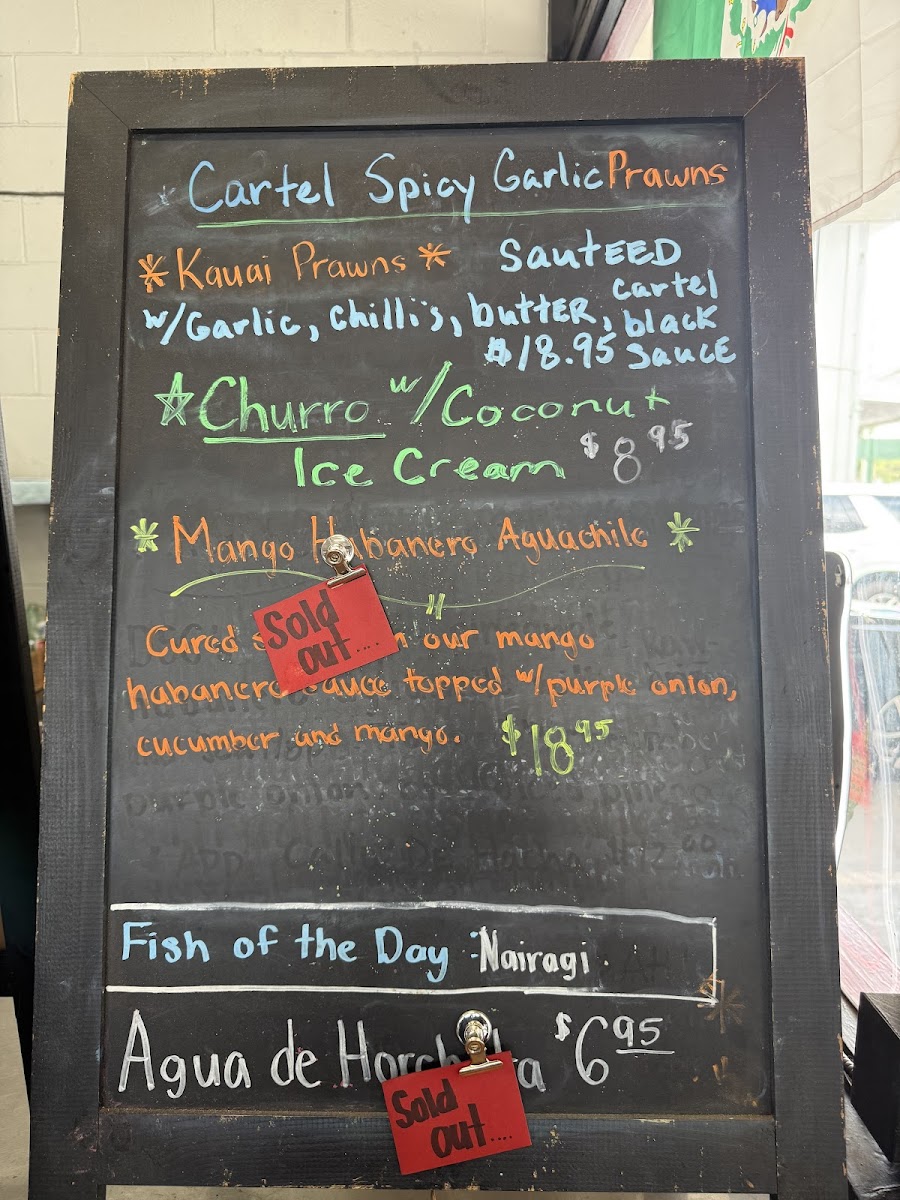 Cartel Spicy Garlic Prawns
*Kauai Prawns* SautEED
w/Garlic, chilli's, buttER, cartel
black
$18.95 SaucE
☆Churro w/Coconut
Ice Cream $8.95
*Mango Habanero Aguachile*
Sold
out....
Cured our mango
habanero sauce topped w/purple onion,
cucumber and mango. $18.95
Fish of the Day : Nairagi.
Agua de Horchata $6.95
Sold
out....